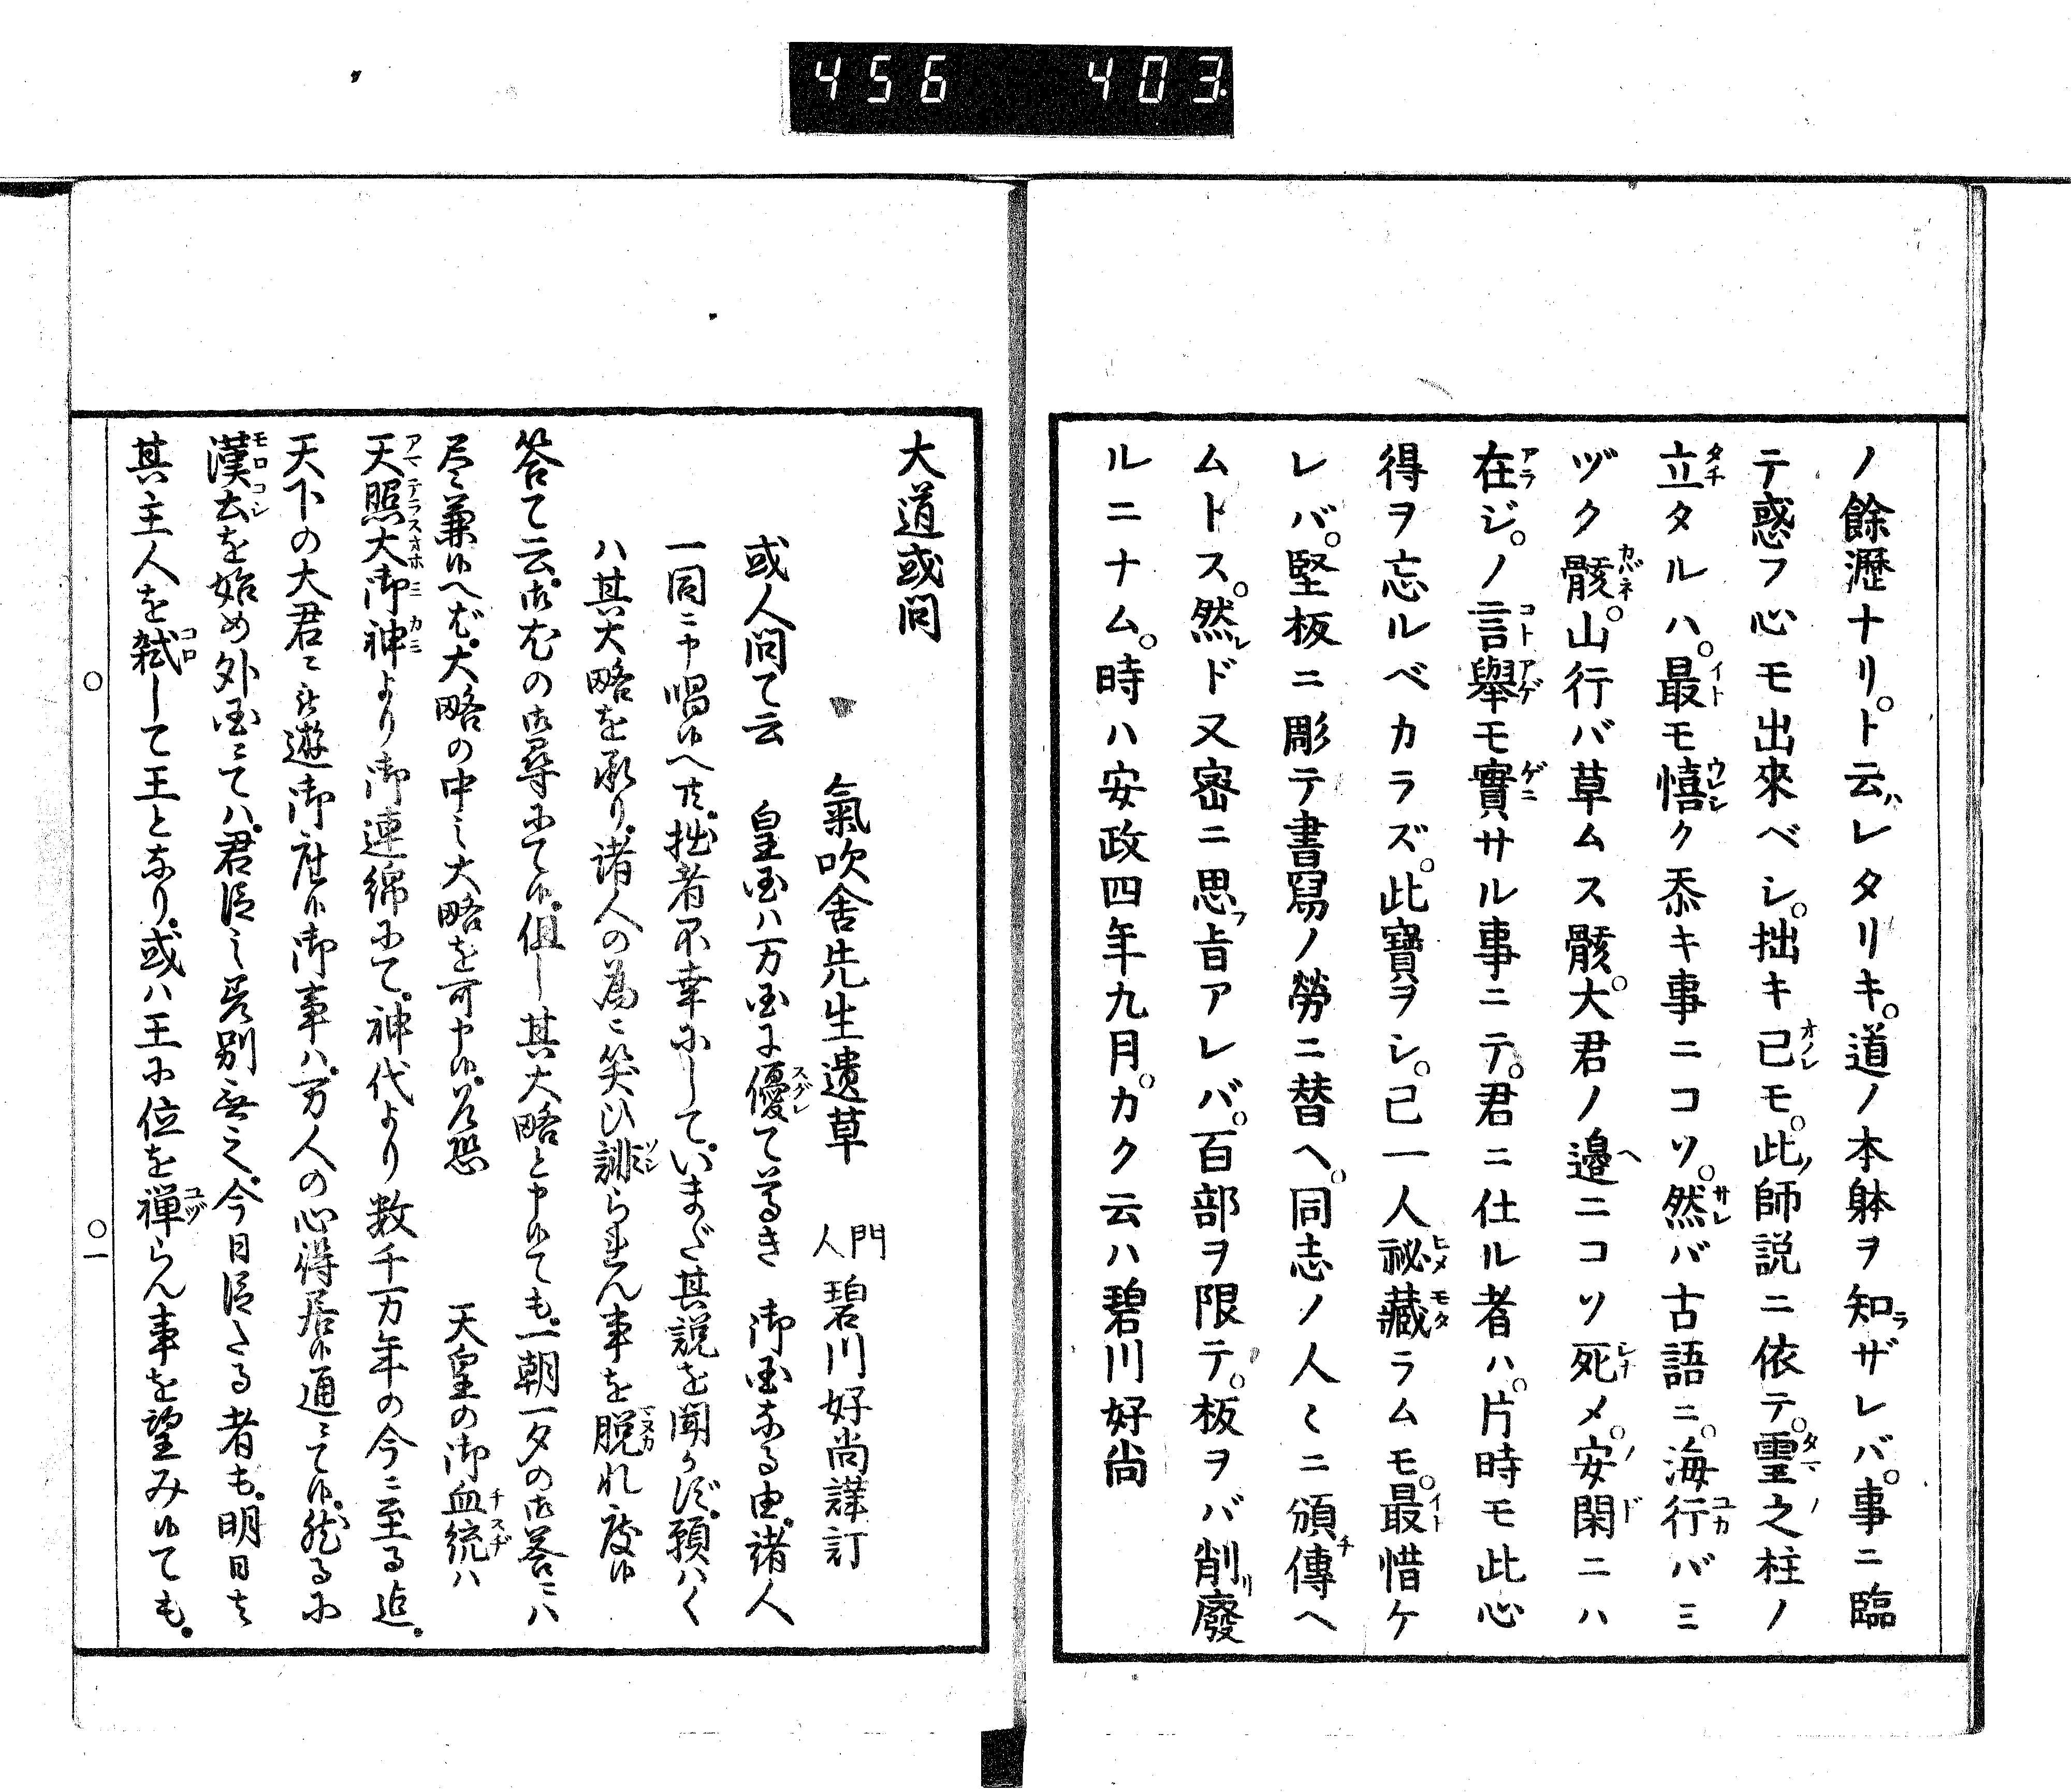 456 403.
ノ餘瀝ナリ。ト云ハレタリキ。道ノ本躰ヲ知ラザレバ。事ニ臨
テ惑フ心モ出來ベシ。拙キ己モ。此ノ師説ニ依テ。霊之柱ノ
立タルハ。最モ憘ク忝キ事ニコソ。然バ古語ニ。海行バミ
ヅク骸。山行バ草ムス骸。大君ノ邉ニコソ死メ。安閑ニハ
在ジ。ノ言擧モ實サル事ニテ。君ニ仕ル者ハ。片時モ此心
得ヲ忘ルベカラズ。此寶ヲシ。己一人祕藏ラムモ。最惜ケ
レバ。堅板ニ彫テ書寫ノ勞ニ替ヘ。同志ノ人〻ニ頒傳ヘ
ムトス。然レド又密ニ思フ旨アレバ。百部ヲ限テ。板ヲバ削リ廢
ルニナム。時ハ安政四年九月。カク云ハ碧川好尚
大道或問
氣吹舍先生遺草 門人 碧川好尚謹訂
或人問て云 皇国ハ万国に優て尊き 御国なる由。諸人
一同ニ申唱候へ共。拙者不幸にして。いまだ其説を聞かず。願ハく
ハ其大略を承り。諸人の為ニ笑ひ誹られん事を脱れ度候
答て云。御尤の御尋にて候。但し其大略と申候ても。一朝一夕の御答ニハ
尽し兼候へば。大略の中之大略を可申候。乍恐 天皇の御血統ハ
天照大御神より御連綿にて。神代より数千万年の今ニ至る迄。
天下の大君ニ被遊御座候御事ハ。万人の心得居候通ニて候。然るに
漢土を始め外国ニてハ。君臣之差別無之。今日臣たる者も。明日は
其主人を弑して王となり。或ハ王に位を禅らん事を望み候ても。
○ ○一